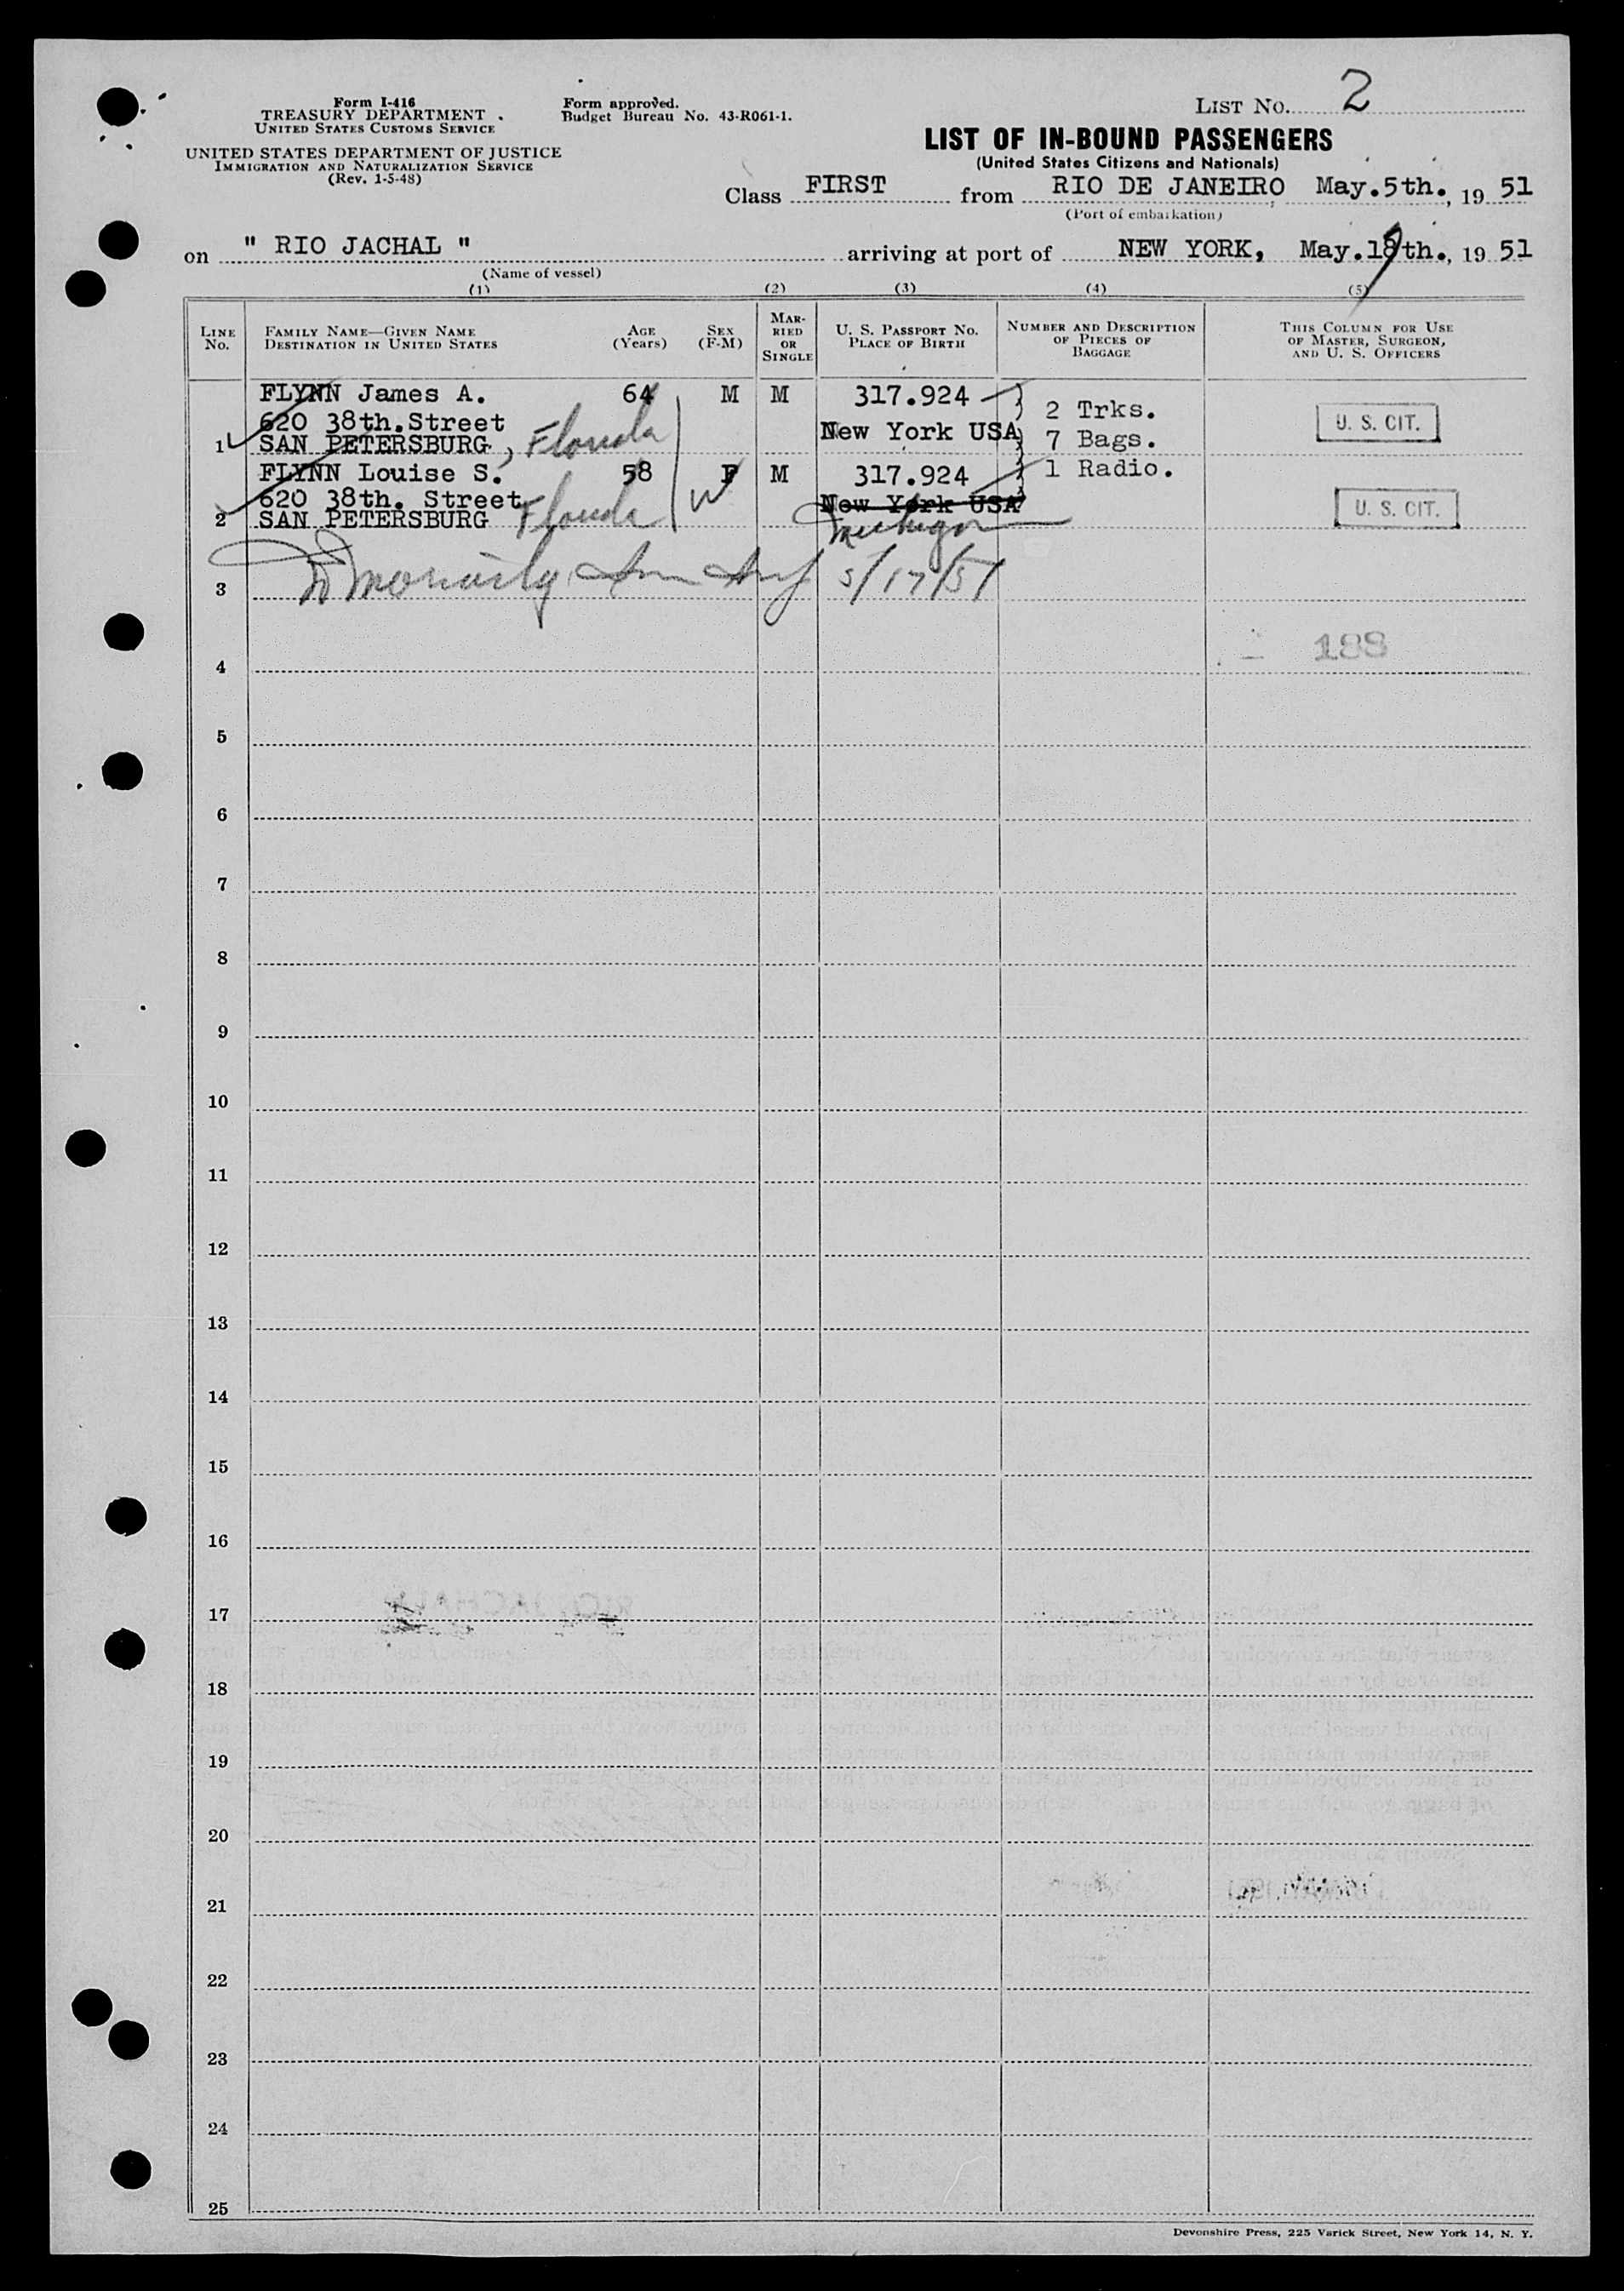 LIST No. 2
Form I-416
TREASURY DEPARTMENT
UNITED STATES CUSTOMS SERVICE
Form approved.
Budget Bureau No. 43-R061-1.
UNITED STATES DEPARTMENT OF JUSTICE
IMMIGRATION AND NATURALIZATION SERVICE
(Rev. 1-5-48)
LIST OF IN-BOUND PASSENGERS
(United States Citizens and Nationals)
Class FIRST from RIO DE JANEIRO May.5th., 19 51
(Port of embarkation)
on " RIO JACHAL " arriving at port of NEW YORK, May.17th., 19 51
(Name of vessel)
(1) (2) (3) (4) (5)
LINE No. FAMILY NAME—GIVEN NAME DESTINATION IN UNITED STATES AGE (Years) SEX (F-M) MARRIED OR SINGLE U. S. PASSPORT No. PLACE OF BIRTH NUMBER AND DESCRIPTION OF PIECES OF BAGGAGE THIS COLUMN FOR USE OF MASTER, SURGEON, AND U. S. OFFICERS
FLYNN James A. 64 M M 317.924
620 38th.Street New York USA 2 Trks. U. S. CIT.
1 SAN PETERSBURG, Florida 7 Bags.
FLYNN Louise S. 58 F M 317.924 1 Radio.
620 38th. Street New York USA U. S. CIT.
2 SAN PETERSBURG Florida W Michigan
3 5/17/51
4 188
5
6
7
8
9
10
11
12
13
14
15
16
17
18
19
20
21
22
23
24
25
Devonshire Press, 225 Varick Street, New York 14, N. Y.